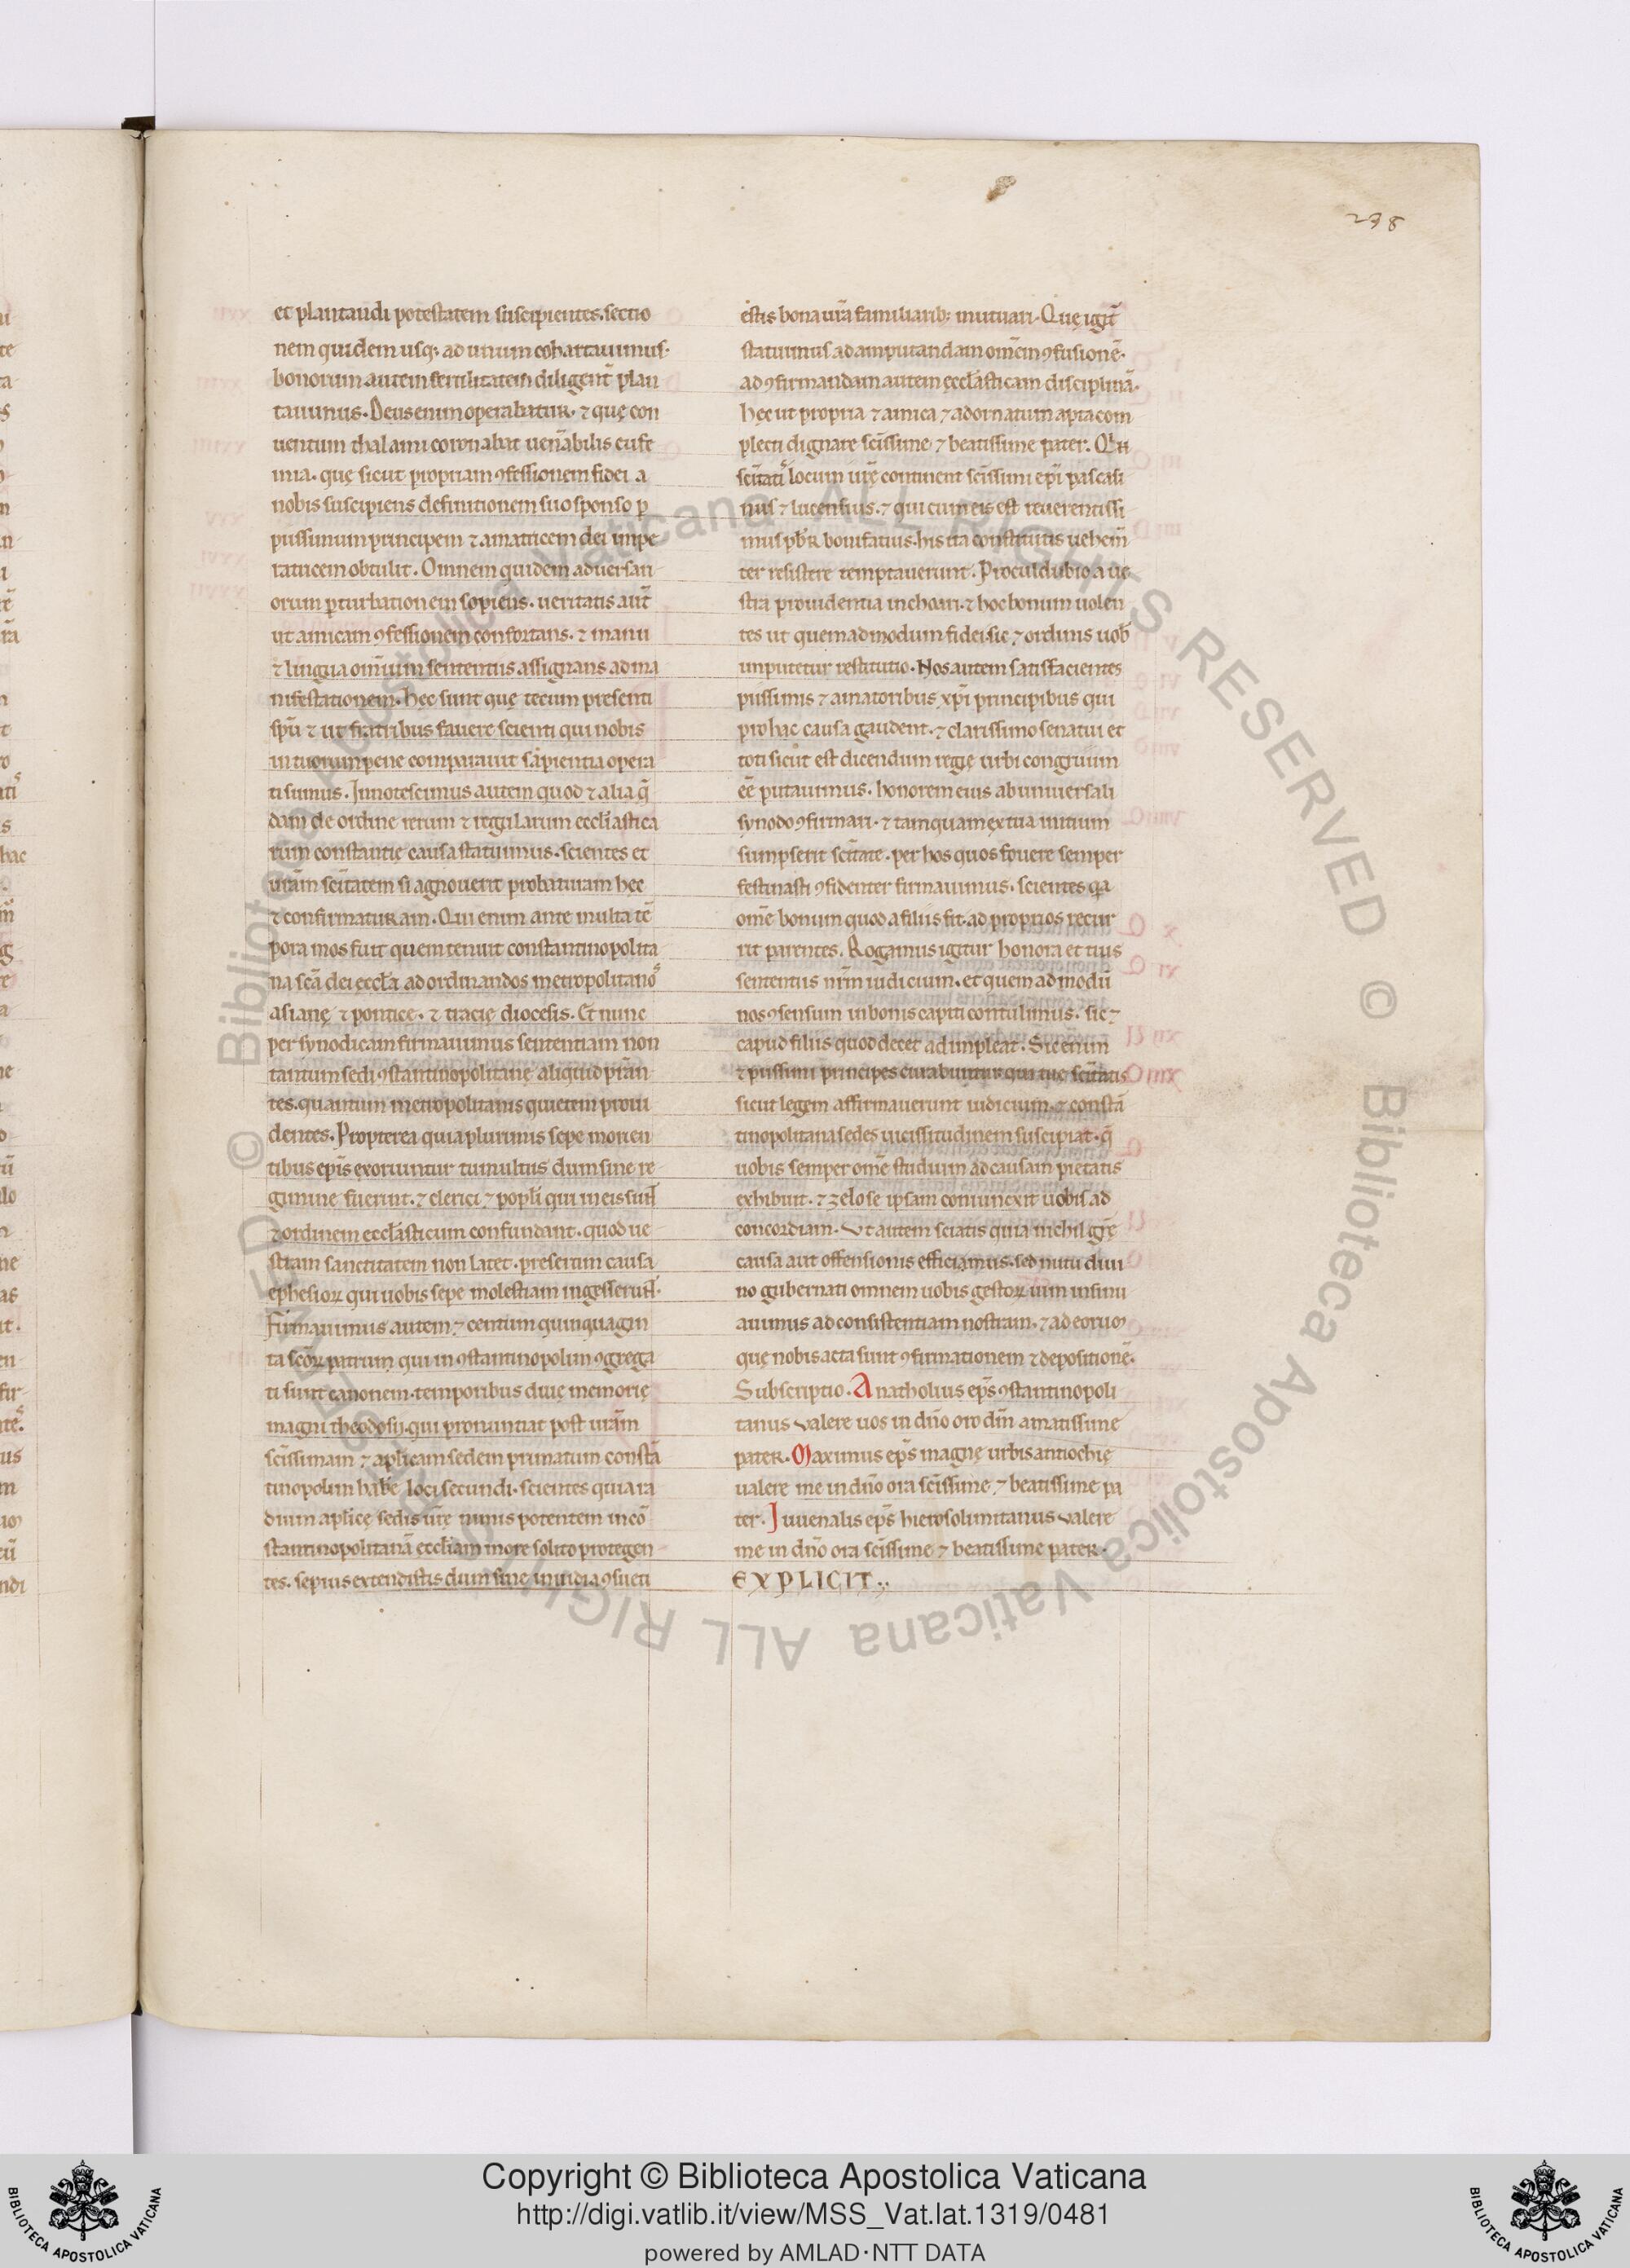 238
et plantandi potestatem suscipientes. sectio
nem quidem usq; ad unum cohartauimus·
bonorum autem fertilitatem diligent̄ plan
tauimus. Deus enim operabatur· ⁊ quę con
uentum thalami coronabat uen̄abilis eufe
mia. quę sicut propriam ꝯfessionem fidei a
nobis suscipiens definitionem suo sponso p̄
piissimum principem ⁊ amatricem dei impe
ratricem obtulit. Omnem quidem aduersan
orum ꝑturbationem sopiens. ueritatis aut̄
ut amicam ꝯfessionem confortans. ⁊ manu
⁊ lingua omīum sententiis assignans ad ma
nifestationem. hęc sunt quę tecum presenti
sp̄u ⁊ ut fratribus fauere scienti qui nobis
in tuorum pene comparauit sapientia opera
ti sumus. Innotescimus autem quod ⁊ alia q̄
dam de ordine rerum ⁊ regularum eccl̄iastica
rum constantię causa statuimus. scientes et
ur̄am sc̄itatem si agnouerit probaturam hęc
⁊ confirmaturam. Qui enim ante multa tē
pora mos fuit quem tenuit constantinopolita
na sc̄a dei eccl̄a ad ordinandos metropolitanoˢ
asianę ⁊ ponticę. ⁊ tracię diocesis. Et nunc
per synodicam firmauimus sententiam non
tantum sedi ꝯstantinopolitanę aliquid prān
tes. quantum metropolitanis quietem proui
dentes. Propterea quia plurimis sepe morien
tibus ep̄is exoriuntur tumultus dum sine re
gimine fuerint. ⁊ clerici ⁊ popl̄i qui in eis sun̄t
⁊ ordinem eccl̄asticum confundant. quod ue
stram sanctitatem non latet. presertim causa
ephesioꝝ qui uobis sepe molestiam ingesserun̄t.
Firmauimus autem ⁊ centum quinquagin
ta sc̄oꝝ patrum qui in ꝯstantinopolim ꝯgrega
ti sunt canonem. temporibus diuę memorię
magni theodosij. qui pronuntiat post uram̄
sc̄issimam ⁊ ap̄licam sedem primatum constā
tinopolim hab̄e loci secundi. scientes quia ra
dium ap̄licę sedis ūrę nimis potentem in cō
stantinopolitanā eccl̄iam more solito protegen
tes. sepius extendistis dum sine inuidia ꝯsueti
estis bona ur̄a familiarib; mutuari. Quę igit̄
statuimus ad amputandam omēm ꝯfusionē.
ad ꝯfirmandam autem ęccl̄asticam disciplinā.
hęc ut propria ⁊ amica ⁊ ad ornatum apta com
plecti dignare sc̄issime ⁊ beatissime pater. Qui
sc̄itatiˢ locum ur̄ę continent sc̄issimi ep̄i pascasi
nus ⁊ lucensius. ⁊ qui cum eis est reuerentissi
mus pb̄r bonifatius. his ita constitutis uehem̄
ter resistere temptauerunt. Procul dubio a ue
stra prouidentia inchoari. ⁊ hoc bonum uolen
tes ut quemadmodum fidei sic ⁊ ordinis uob̄
imputetur restitutio. Nos autem satisfacientes
piissimis ⁊ amatoribus xp̄i principibus qui
pro hac causa gaudent. ⁊ clarissimo senatui et
toti sicut est dicendum regię urbi congruum
eē putauimus. honorem eius ab uniuersali
synodo ꝯfirmari. ⁊ tamquam ex tua initium
sumpserit sc̄itate. per hos quos fouere semper
festinasti ꝯfidenter firmauimus. scientes qa
omē bonum quod a filiis fit. ad proprios recur
rit parentes. Rogamus igitur honora et tuis
sententiis nrm̄ iudicium. et quem ad modū
nos ꝯsensum in bonis capiti contulimus. sic ⁊
capud filiis quod decet adimpleat. Sic enim
⁊ piissimi principes curabuntur qui tuę sc̄itatis
sicut legem affirmauerunt iudicium. ⁊ constā
tinopolitana sedes uicissitudinem suscipiat. q̄
uobis semper omē studium ad causam pietatis
exhibuit. ⁊ zelo se ipsam coniunexit uobis ad
concordiam. Vt autem sciatis quia nichil gr̄ę
causa aut offensionis efficiamus. sed nutu diui
no gubernati omnem uobis gestoꝝ uim insinu
auimus ad consistentiam nostram. ⁊ ad eorum
quę nobis acta sunt ꝯfirmationem ⁊ depositionē.
Subscriptio. Anatholius ep̄s ꝯstantinopoli
tanus valere uos in dn̄o oro dn̄i amatissime
pater. Maximus ep̄s magnę urbis antiochię
ualere me in dn̄o ora sc̄issime ⁊ beatissime pa
ter. Iuuenalis ep̄s hierosolimitanus valere
me in dn̄o ora sc̄issime ⁊ beatissime pater.
EXPLICIT
© Biblioteca Apostolica Vaticana ALL RIGHTS RESERVED © Biblioteca Apostolica Vaticana ALL RIGHTS RESERVED
Copyright © Biblioteca Apostolica Vaticana
http://digi.vatlib.it/view/MSS_Vat.lat.1319/0481
powered by AMLAD·NTT DATA
BIBLIOTECA APOSTOLICA VATICANA
BIBLIOTECA APOSTOLICA VATICANA